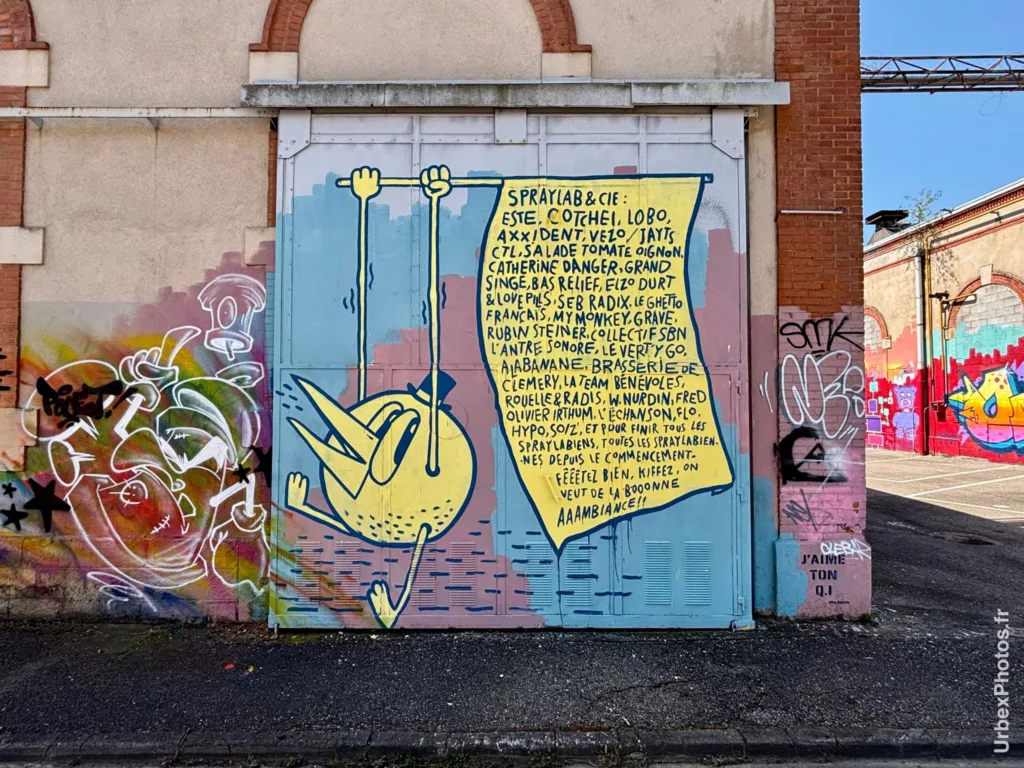 SPRAYLAB & CIE :
ESTE, COTCHEI, LOBO,
AXXIDENT, VEZO / JAYTS
CTL, SALADE TOMATE OIGNON,
CATHERINE DANGER, GRAND
SINGE, BAS RELIEF, ELZO DURT
& LOVE PILS, SEB RADIX, LE GHETTO
FRANÇAIS, MY MONKEY, GRAVE,
RUBIN STEINER, COLLECTIF SBN
L'ANTRE SONORE, LE VERTYGO,
AÏABANANE, BRASSERIE DE
CLEMERY, LA TEAM BÉNÉVOLES,
ROUELLE & RADIS, W. NURDIN, FRED
OLIVIER IRTHUM, L'ÉCHANSON, FLO,
HYPO, SOIZ', ET POUR FINIR TOUS LES
SPRAYLABIENS, TOUTES LES SPRAYLABIEN-
-NES DEPUIS LE COMMENCEMENT.
FÊÊÊTEZ BIEN, KIFFEZ, ON
VEUT DE LA BOOONNE
AAAMBIANCE!!
SMK
J'AIME
TON
Q.I
UrbexPhotos.fr